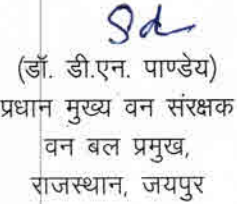 Sd
(डॉ. डी.एन. पाण्डेय)
प्रधान मुख्य वन संरक्षक
वन बल प्रमुख,
राजस्थान, जयपुर